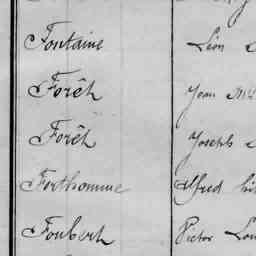 Fontaine Léon
Forêt Jean
Forêt Joseph
Forthomme Alfred
Foubert Victor